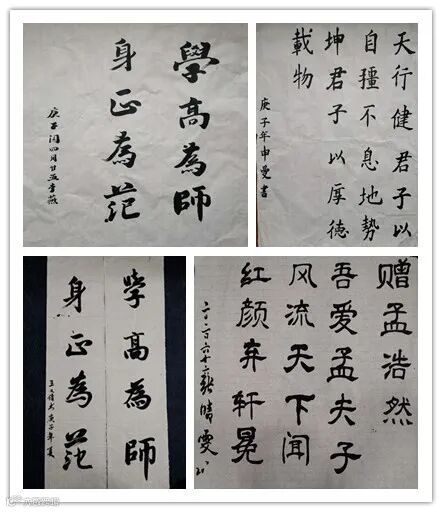 學高為師
身正為范
庚子闰四月廿五李薇
天行健君子以
自疆不息地勢
坤君子以厚德
載物
庚子年申曼書
学高為師
身正為范
庚子年夏
赠孟浩然
吾爱孟夫子
风流天下闻
红颜弃轩冕